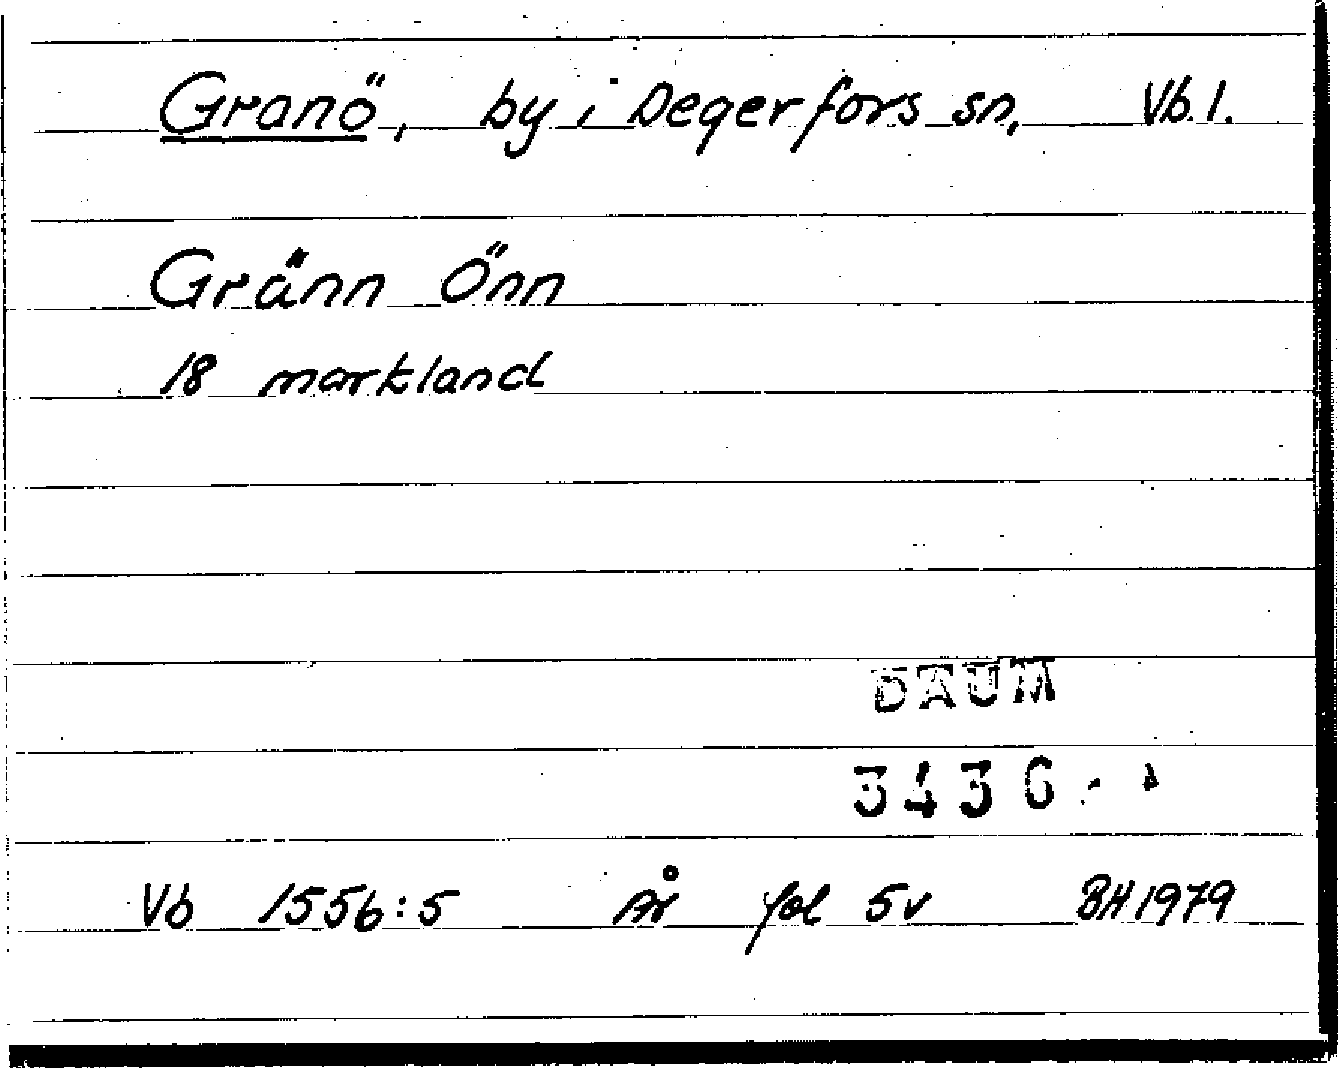 Granö, by i Degerfors sn, Vb.l.
Gränn Önn
18 markland
DAUM
3436
Vb 1556:5 År fol 5v BH 1979